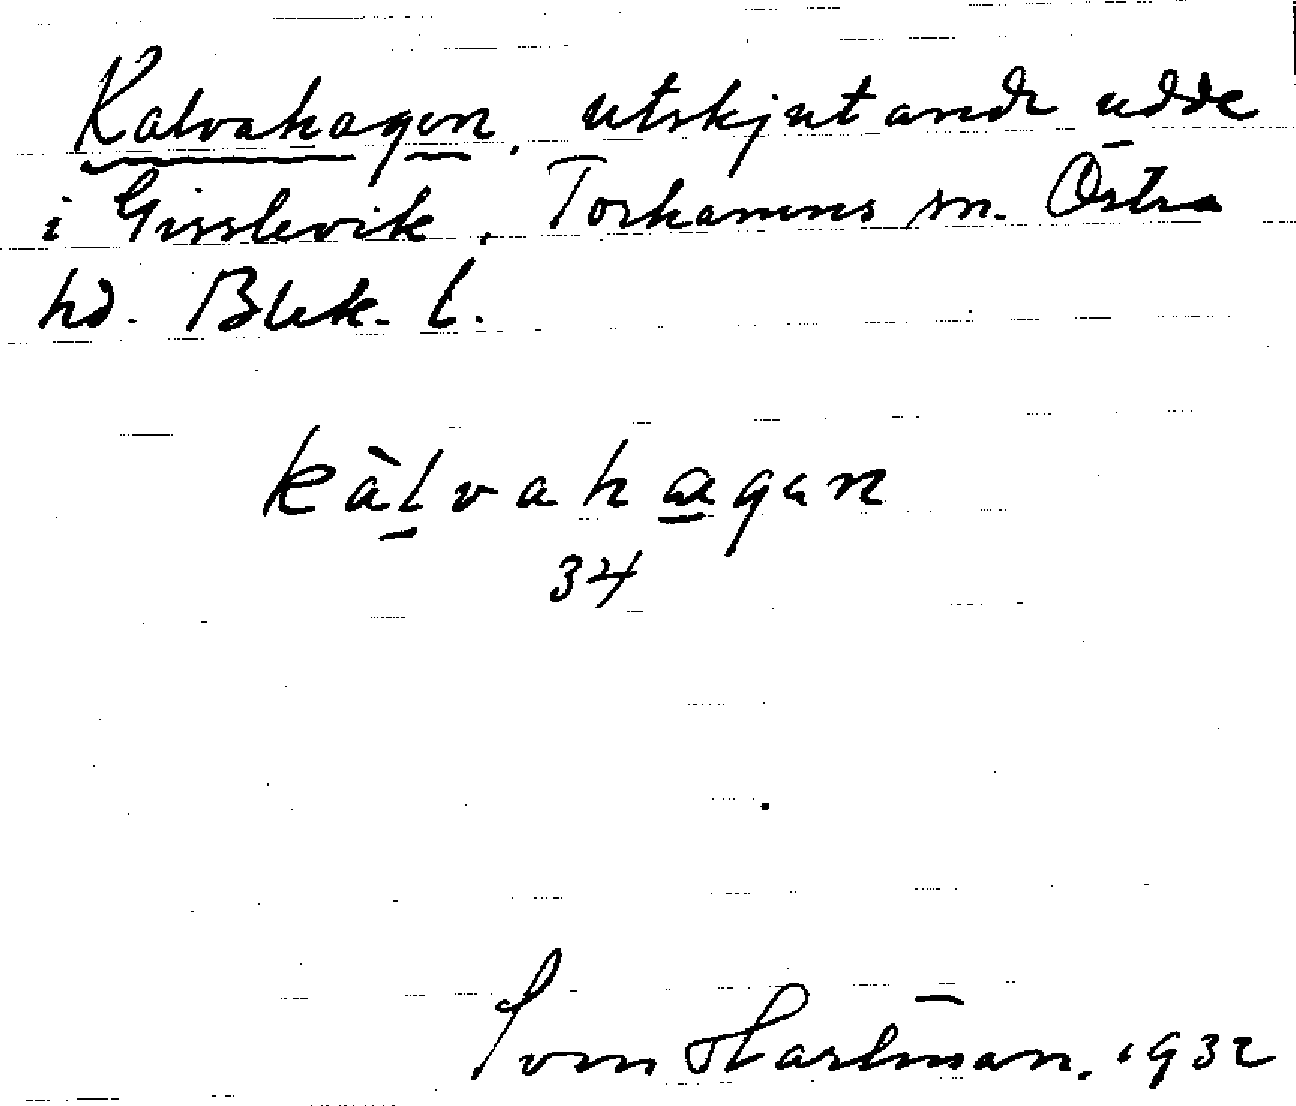 Kalvahagen, utskjutande udde
i Gisslevik, Torhamns sn. Östra
hd. Blek. l.
kàlvahagen
34
Sven Hartman. 1932